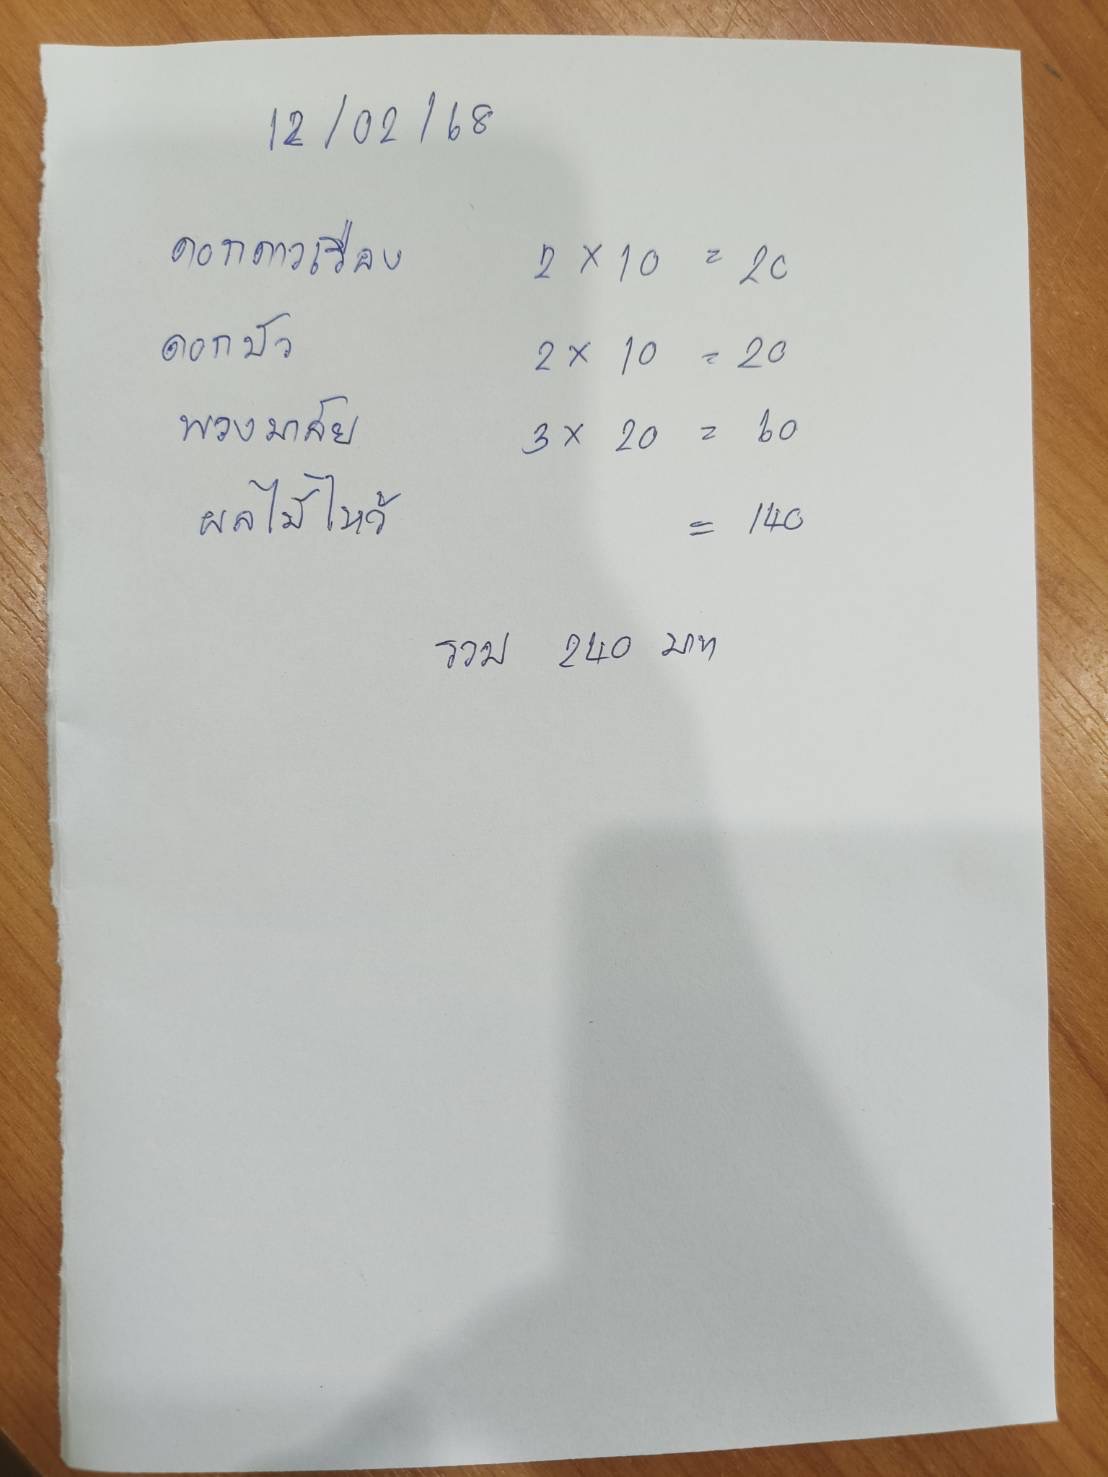 12/02/68
ดอกดาวเรือง 2 × 10 = 20
ดอกบัว 2 × 10 = 20
พวงมาลัย 3 × 20 = 60
ผลไม้ไหว้ = 140
รวม 240 บาท